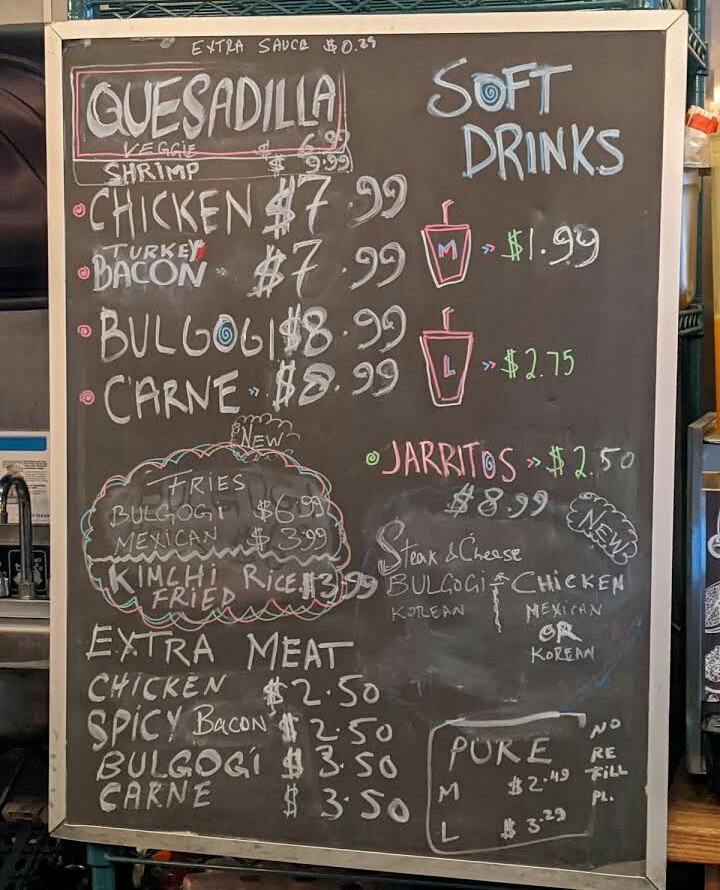 EXTRA SAUCE $0.29
QUESADILLA
VEGGIE $6.99
SHRIMP $9.99
CHICKEN $7.99
TURKEY
BACON » $7.99
BULGOGI $8.99
CARNE » $8.99
SOFT
DRINKS
M » $1.99
L » $2.75
JARRITOS » $2.50
NEW
FRIES
BULGOGI $6.99
MEXICAN $3.99
KIMCHI RICE $3.99
FRIED
$8.99
NEW
Steak & Cheese
BULGOGI CHICKEN
KOREAN MEXICAN
OR
KOREAN
EXTRA MEAT
CHICKEN $2.50
SPICY Bacon $2.50
BULGOGI $3.50
CARNE $3.50
PURE
M $2.49
L $3.29
NO
RE
FILL
PL.